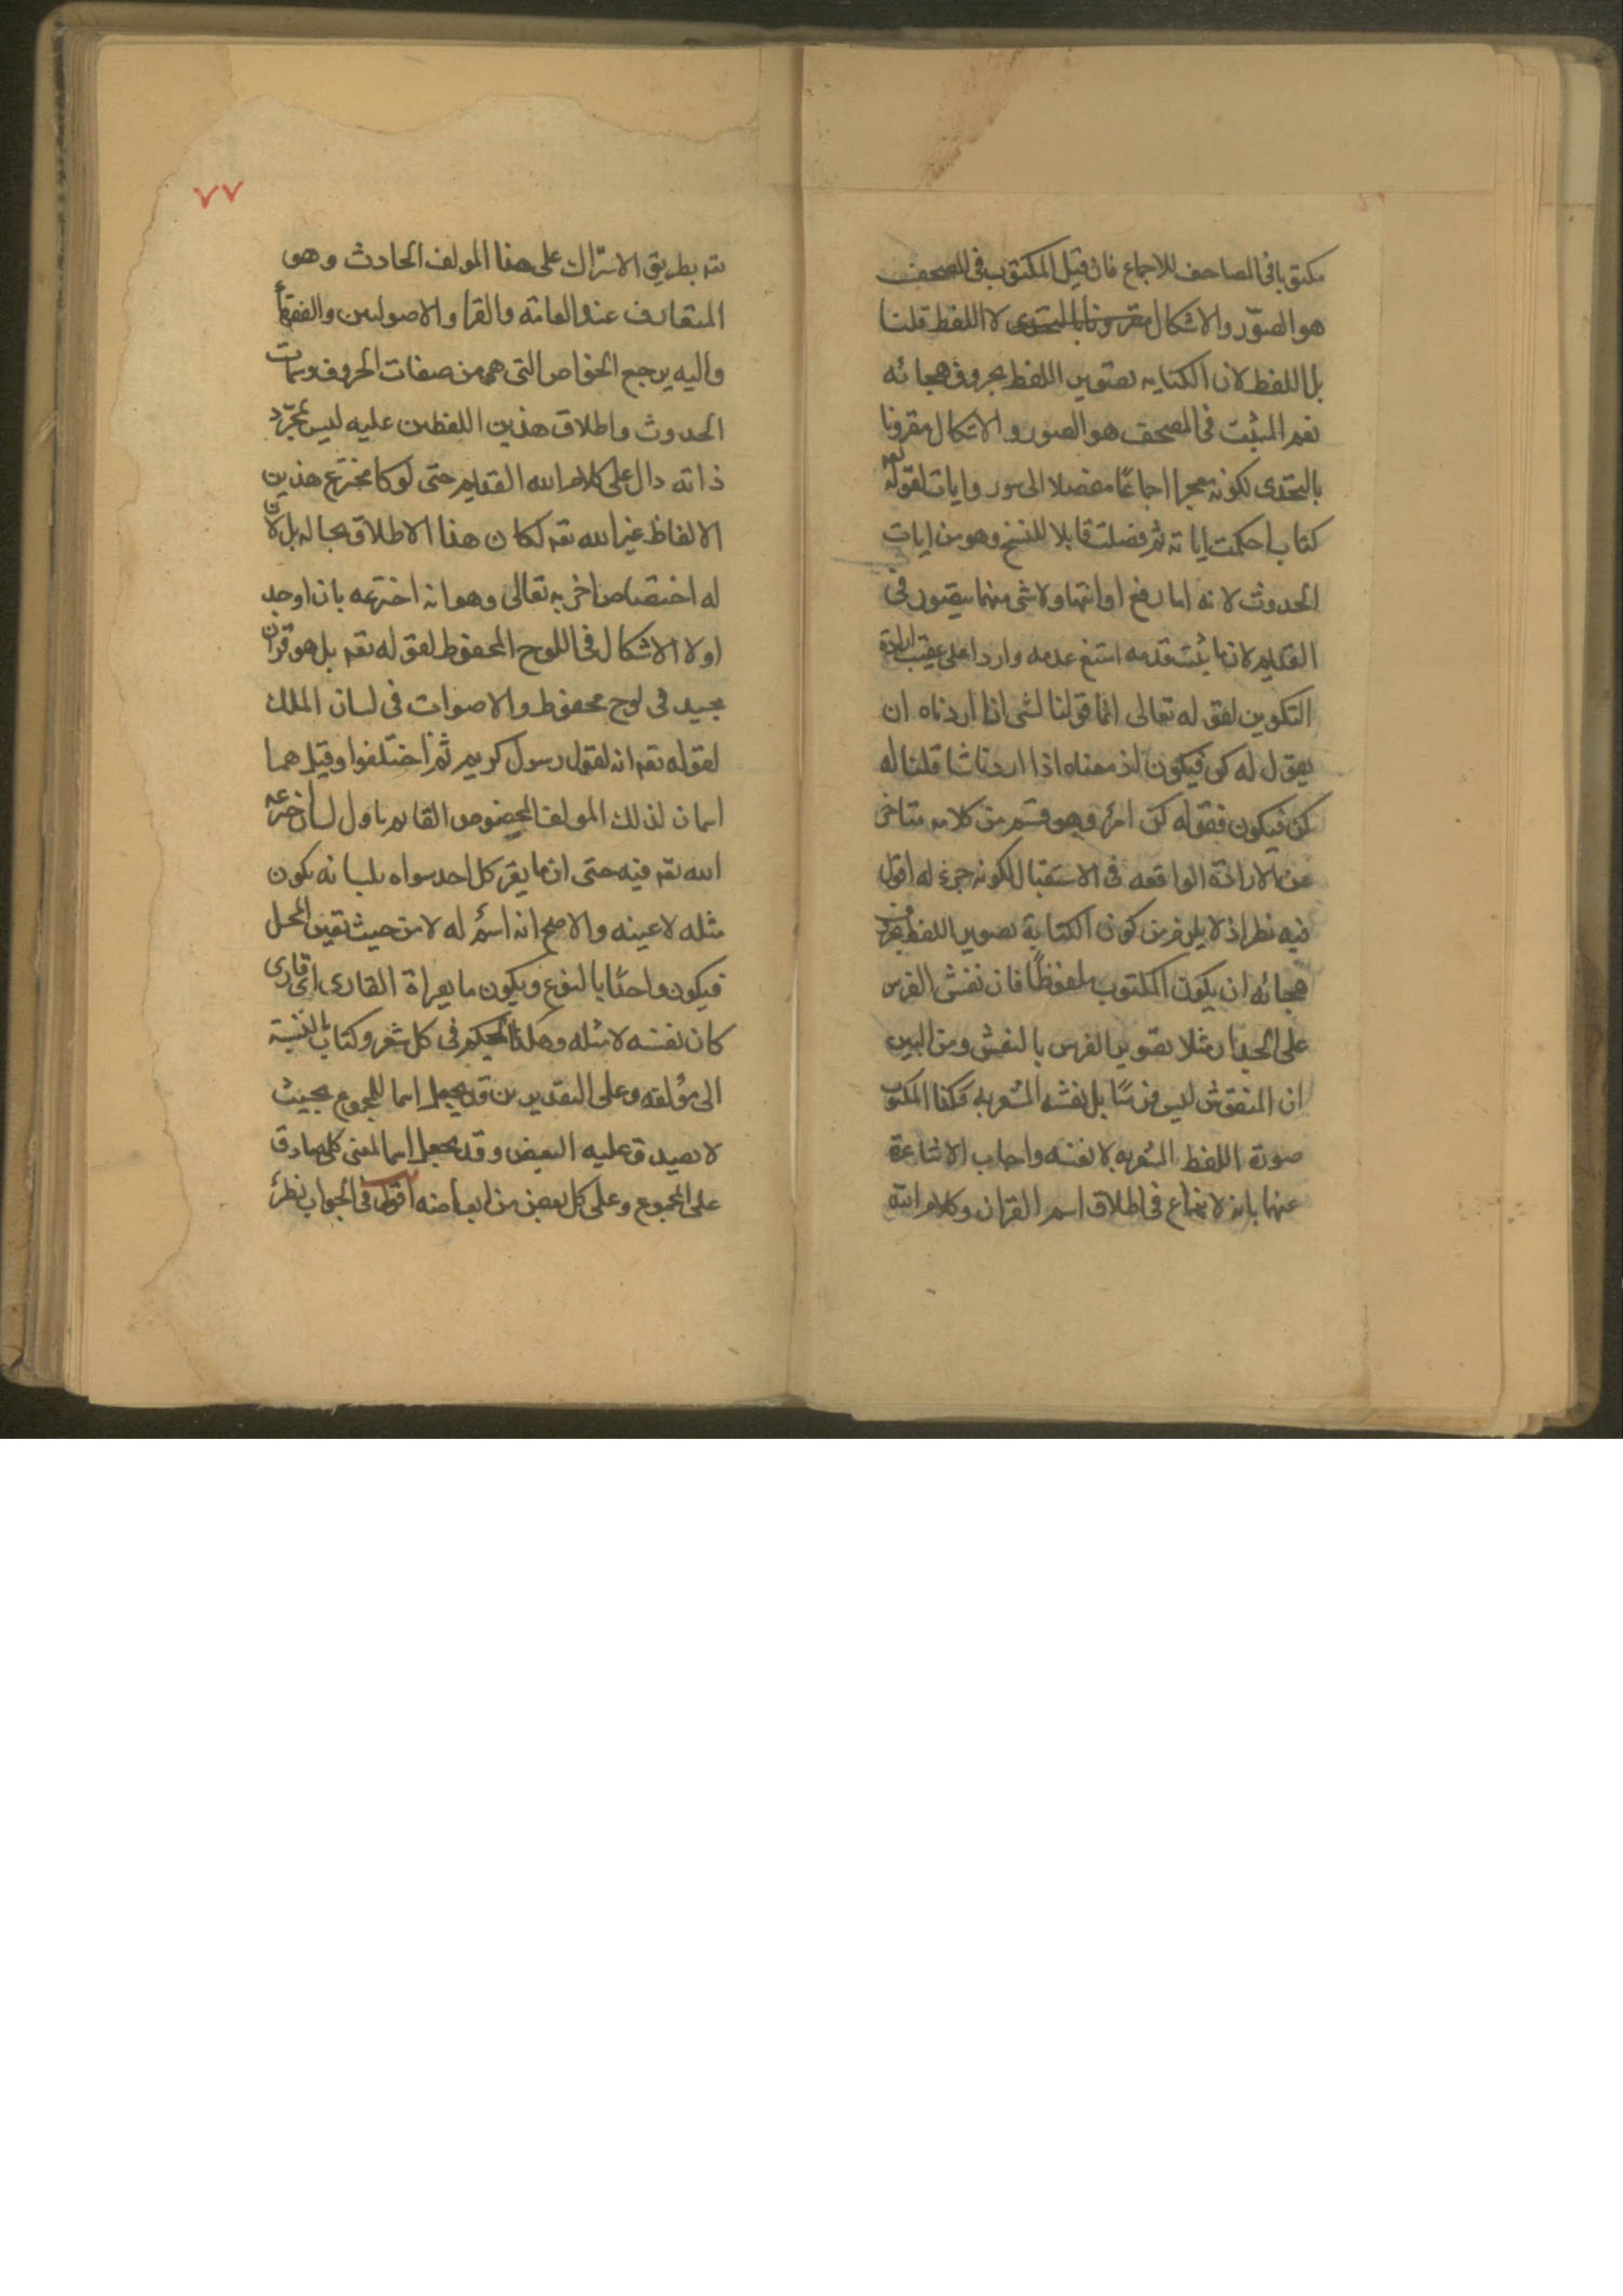 مكتوبا فى المصاحف للاجماع فان قيل المكتوب فى المصحف
هو الصور والاشكال مقرونا بالتحدى لا اللفظ قلنا
بل اللفظ لان الكتابه تصوير اللفظ بحروف هجائه
نعم المثبت فى المصحف هو الصور والاشكال مقرونا
بالتحدى لكونه معجزا اجماعًا مفصلا الى سور وايات لقوله تعه
كتاب احكمت اياته ثم فصلت قابلا للنسخ وهو من ايات
الحدوث لانه اما رفع او انتها ولا شى منهما يتصور فى
القديم لان ما يثبت قدمه امتنع عدمه واردا على عقيب ارادة
التكوين لقوله تعالى انما قولنا لشى اذا اردناه ان
يقول له كن فيكون اذ معناه اذا اردنا شا قلنا له
كن فيكون فقوله كن امر وهو قسم من كلامه متاخر
عن الارادة الواقعه فى الاستقبال لكونه جزء له اقول
فيه نظر اذ لا يلزم من كون الكتابة تصوير اللفظ بحروف
هجائه ان يكون المكتوب ملفوظًا فان نقش الفرس
على الجدار مثلا تصوير الفرس بالنقش ومن البين
ان المنقوش ليس فرسًا بل نقشه المشعر به فكذا المكتوب
صورة اللفظ المشعر به لا نفسه واجاب الاشاعرة
عنها بانه لا نزاع فى اطلاق اسم القران وكلام الله
٧٧
تعه بطريق الاشتراك على هذا المولف الحادث وهو
المتعارف عند العامة والقرا والاصوليين والفقها
واليه يرجع الخواص التى هى من صفات الحروف وسمات
الحدوث واطلاق هذين اللفظين عليه ليس بمجرّد
ذاته دال على كلام الله القديم حتى لو كا مخترع هذين
الالفاظ غير الله تعه لكان هذا الاطلاق بحاله بل لان
له اختصاص اخر به تعالى وهو انه اخترعه بان اوجد
اولا الاشكال فى اللوح المحفوظ لقوله تعه بل هو قران
مجيد فى لوح محفوظ والاصوات فى لسان الملك
لقوله تعه انه لقول رسول كريم ثم اختلفوا وقيل هما
اسمان لذلك المولف المخصوص القايم باول لسان اخترعه
الله تعه فيه حتى ان ما يقر كل احد سواه بلسانه يكون
مثله لا عينه والاصح انه اسم له لا من حيث تعين المحل
فيكون واحدًا بالنوع ويكون ما يقراة القارى اى قارى
كان نفسه لا مثله وهكذا الحكم فى كل شعر وكتاب بالنسبة
الى مؤلفه وعلى التقديرين قد يجعل اسما للمجموع بحيث
لا يصدق عليه البعض وقد يجعل اسما لمعنى كلى صادق
على المجموع وعلى كل بعض من ابعاضه اقول فى الجواب نظر